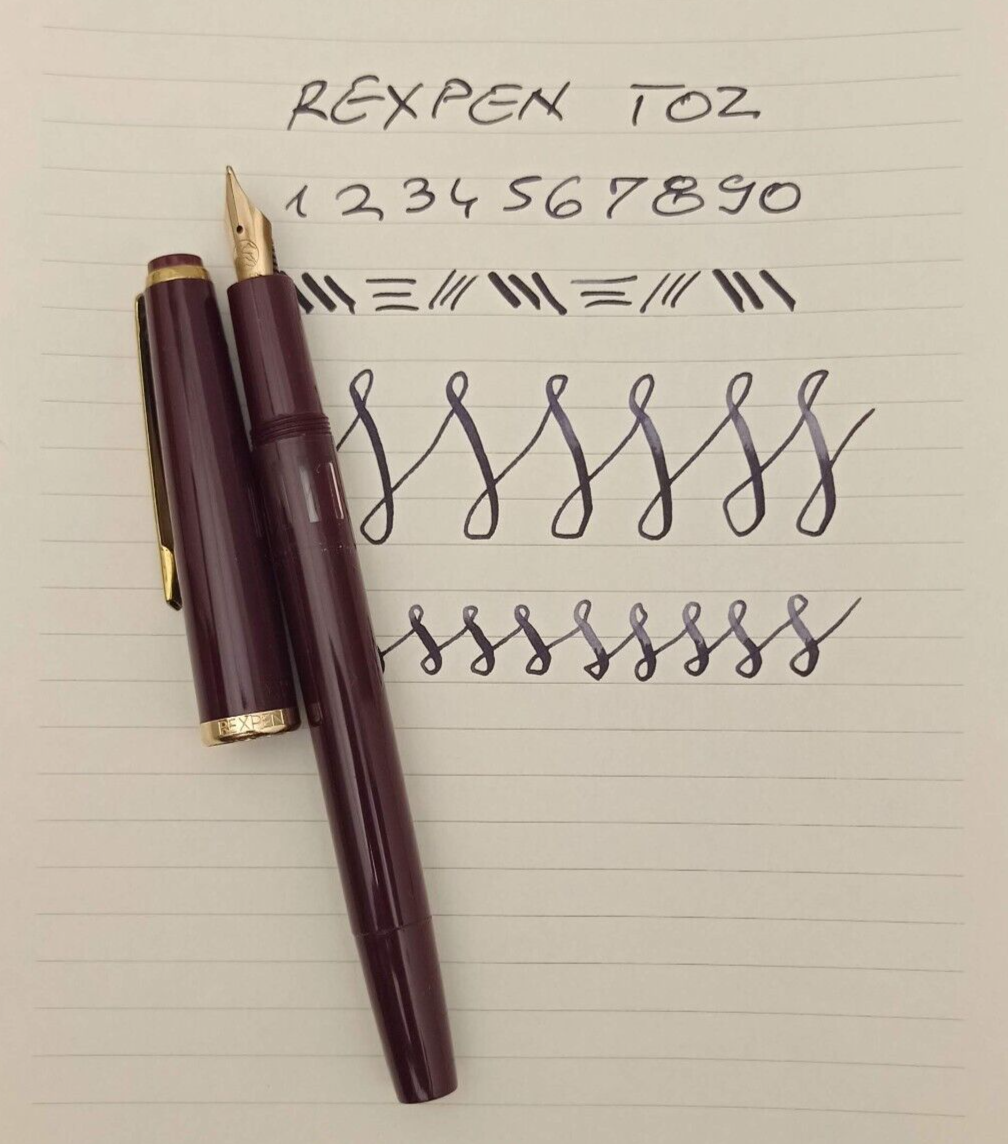 REXPEN TOZ
1 2 3 4 5 6 7 8 9 0
REXPEN